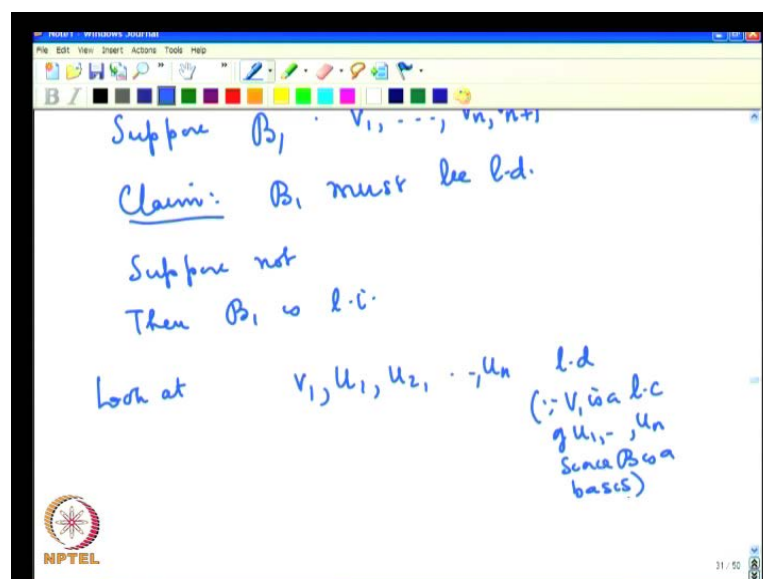 Note1 - Windows Journal
File Edit View Insert Actions Tools Help
B I
Suppose B₁ : v₁, ..., vₙ, vₙ₊₁
Claim: B₁ must be l.d.
Suppose not
Then B₁ is l.i.
Look at v₁, u₁, u₂, ..., uₙ l.d
(∵ v₁ is a l.c
of u₁, -, uₙ
since B is a
basis)
NPTEL
31 / 50